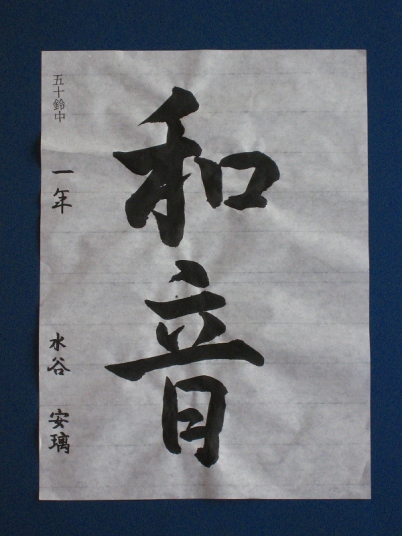 和音
五十鈴中
一年
水谷 安璃